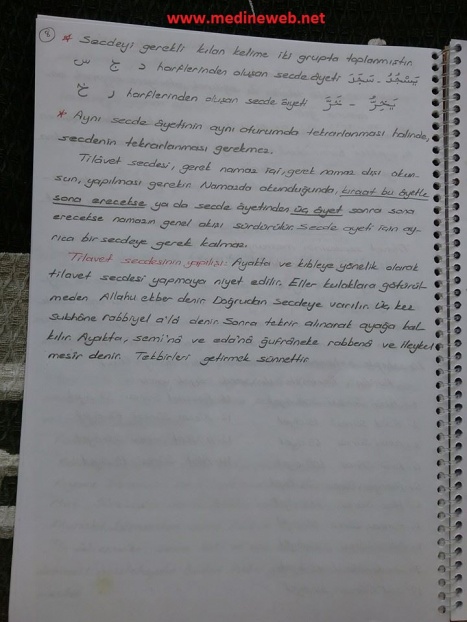 www.medineweb.net
8 * Secdeyi gerekli kılan kelime iki grupta toplanmıştır.
س ج د harflerinden oluşan secde âyeti يَسْجُدُ - سَجَدَ
خ ر harflerinden oluşan secde âyeti يَخِرُّ - خَرَّ
* Aynı secde âyetinin aynı oturumda tekrarlanması halinde,
secdenin tekrarlanması gerekmez.
Tilâvet secdesi, gerek namaz içi, gerek namaz dışı okun-
sun, yapılması gerekir. Namazda okunduğunda, kıraat bu âyetle
sona erecekse ya da secde âyetinden üç âyet sonra sona
erecekse namazın genel akışı sürdürülür. Secde ayeti için ay-
rıca bir secdeye gerek kalmaz.
Tilavet secdesinin yapılışı: Ayakta ve kıbleye yönelik olarak
tilavet secdesi yapmaya niyet edilir. Eller kulaklara götürül-
meden Allahu ekber denir. Doğrudan secdeye varılır. Üç kez
subhâne rabbiyel a'lâ denir. Sonra tekbir alınarak ayağa kal-
kılır. Ayakta, semi'nâ ve eda'nâ ğufrâneke rabbenâ ve ileykel
mesîr denir. Tekbirleri getirmek sünnettir.